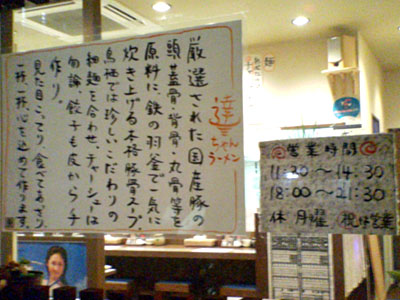 達
ちゃん
ラーメン
厳選された国産豚の
頭蓋骨・背骨・丸骨等を
原料に、鉄の羽釜で一気に
炊き上げる本格豚骨スープ。
鳥栖では珍しいこだわりの
細麺を合わせ、チャーシューは
勿論、餃子も皮から手
作り
見た目こってり食べてあっさり
一杯一杯心を込めて作ります。
営業時間
11:30〜14:30
18:00〜21:30
休 月曜/祝は営業